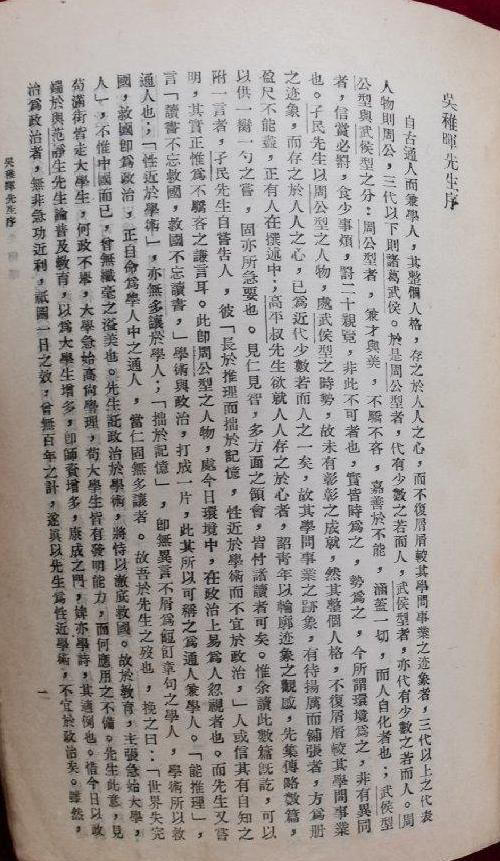 吳稚暉先生序
自古通人而兼學人，其整個人格，存之於人人之心，而不復屑屑較其學問事業之迹象者，三代以上之代表
人物則周公，三代以下則諸葛武侯。於是周公型者，代有少數之若而人，武侯型者，亦代有少數之若而人。周
公型與武侯型之分：周公型者，兼才與美，不驕不吝，嘉善矜不能，涵蓋一切，而人自化者也；武侯型
者，信賞必罰，食少事煩，罰二十親覽，非此不可者也，實皆時爲之，勢爲之，今所謂環境爲之，非有異同
也。孑民先生以周公型之人物，處武侯型之時勢，故未有彰彰之成就，然其整個人格，不復屑屑較其學問事業
之迹象，而存之於人人之心，已爲近代少數若而人之一矣，故其學問事業之跡象，有待揚厲而鋪張者，方爲册
盈尺不能盡，正有人在撰述中；高平叔先生欲就人人存之於心者，詔青年以輪廓迹象之觀感，先集傳略數篇，
以供一臠一勺之嘗，固亦所急要也。見仁見智，多方面之領會，皆付諸讀者可矣。惟余讀此數篇旣訖，可以
附一言者，孑民先生自嘗告人，彼「長於推理而拙於記憶，性近於學術而不宜於政治，」人或信其有自知之
明，其實正惟爲不驕吝之謙言耳。此卽周公型之人物，處今日環境中，在政治上易爲人忽視者也。而先生又嘗
言「讀書不忘救國，救國不忘讀書，」學術與政治，打成一片，此其所以可稱之爲通人兼學人。「能推理」，
通人也；「性近於學術」，亦無多讓於學人；「拙於記憶」，卽無異言不屑爲餖飣章句之學人，學術所以救
國，救國卽爲政治，正自命爲學人中之通人，當仁固無多讓者。故吾於先生之歿也，挽之曰：「世界失完
人」，不惟中國而已，曾無纖毫之溢美也。先生託政治於學術，將恃以澈底救國。故於教育，主張急始大學，
苟滿街皆走大學生，何政不舉，大學急始高尙學理，苟大學生皆有發明能力，而何應用之不備。先生此意，見
端於與范靜生先生論普及敎育，以爲大學生增多，卽師資增多，康成之門，婢亦學詩，其適例也。惜今日以政
治爲政治者，無非急功近利，祇圖一日之效，曾無百年之計，遂眞以先生爲性近學術，不宜於政治矣。雖然，
吳稚暉先生序
一